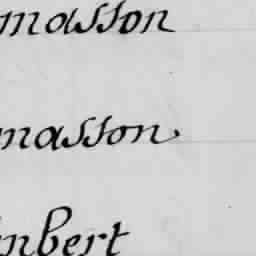 masson
masson.
mbert